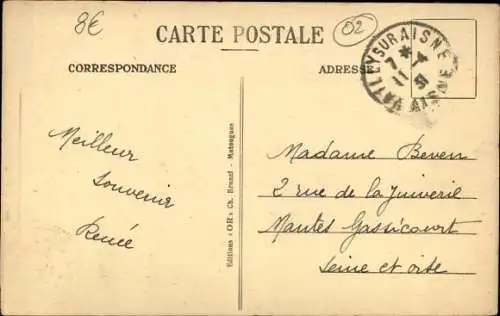 8€
CARTE POSTALE
02
CORRESPONDANCE
ADRESSE
VAILLY SUR AISNE
AISNE
Meilleur
souvenir
Renée
Editions "OR" Ch. Brunel - Matougues
Madame Beven
2 rue de la Juiverie
Mantes Gassicourt
Seine et oise